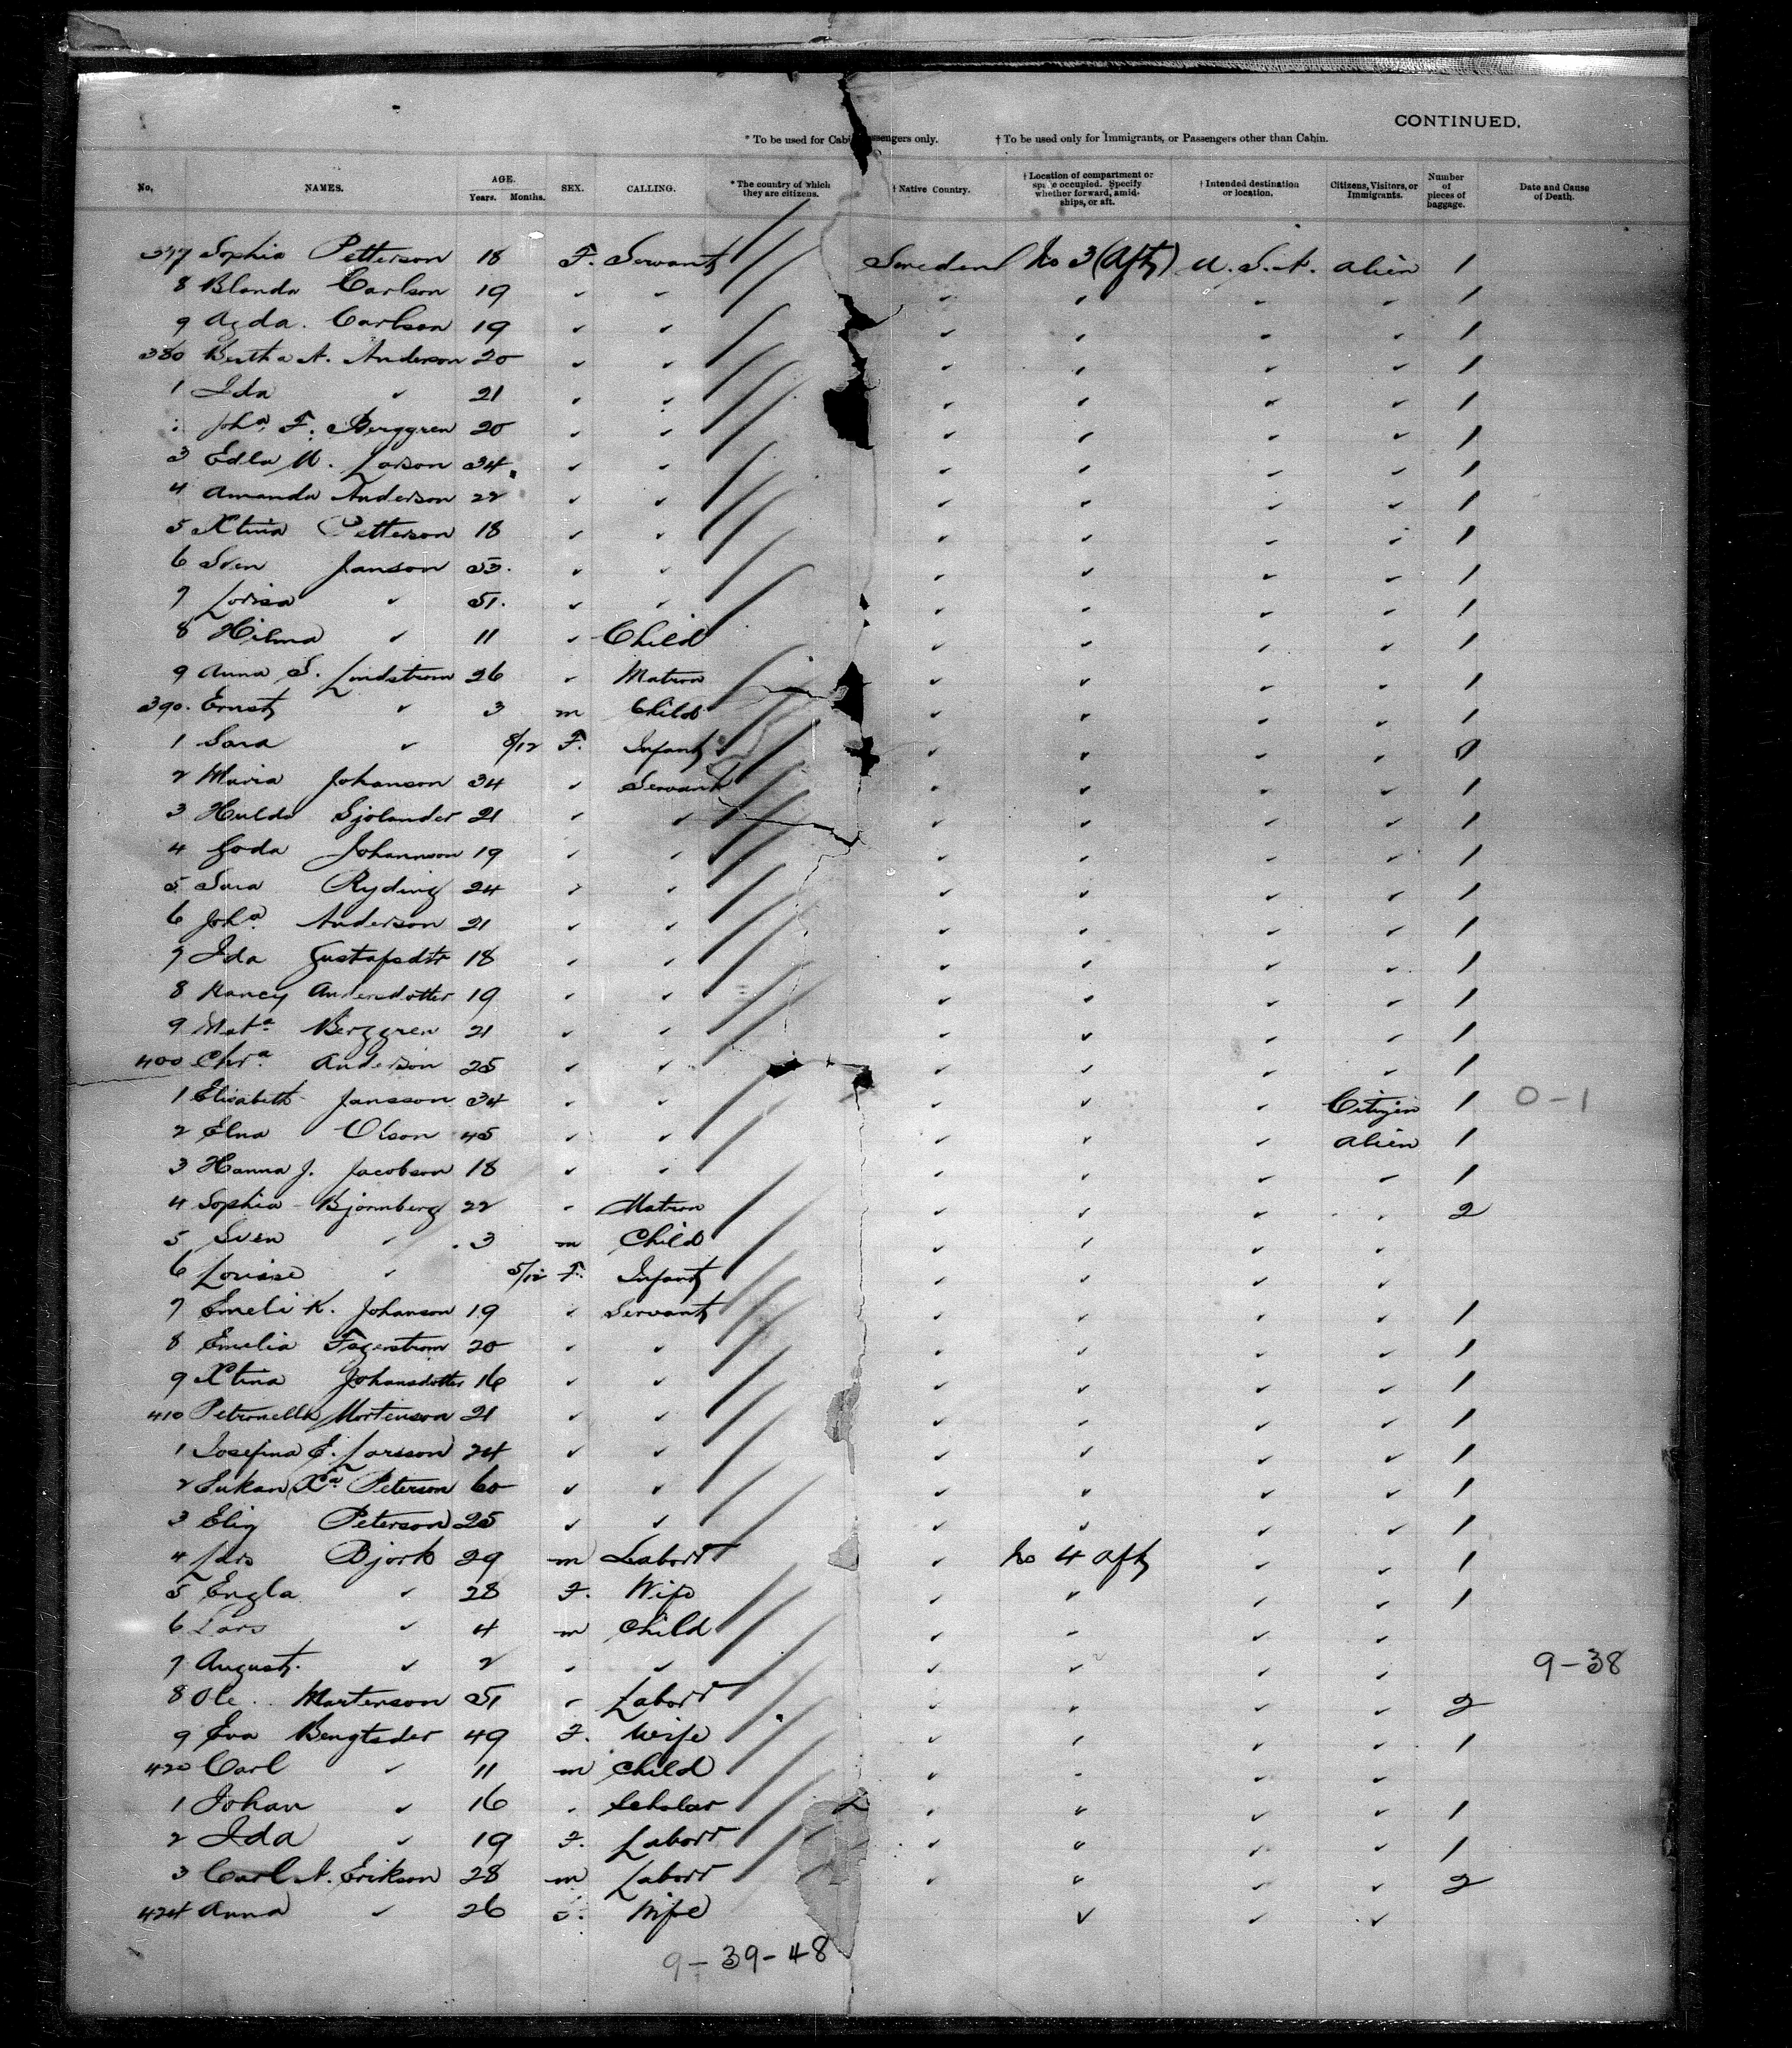 CONTINUED.
* To be used for Cabin Passengers only. † To be used only for Immigrants, or Passengers other than Cabin.
No. NAMES. AGE. Years. Months. SEX. CALLING. * The country of which they are citizens. † Native Country. † Location of compartment or space occupied. Specify whether forward, amidships, or aft. † Intended destination or location. Citizens, Visitors, or Immigrants. Number of pieces of baggage. Date and Cause of Death.
377 Sophia Petterson 18 F. Servant Sweden No 3 (Aft) U.S.A. Alien 1
8 Blanda Carlson 19 " " " " " " 1
9 Agda. Carlson 19 " " " " " " 1
380 Bertha A. Anderson 20 " " " " " " 1
1 Ida " 21 " " " " " " 1
Joha. F. Berggren 20 " " " " " " 1
3 Edla M. Larson 34 " " " " " " 1
4 Amanda Anderson 22 " " " " " " 1
5 Xtina Petterson 18 " " " " " " 1
6 Sven Janson 53. " " " " " " 1
7 Lovisa " 51. " " " " " " 1
8 Hilma " 11 " Child " " " " 1
9 Anna S. Lindstrom 26 " Matron " " " " 1
390. Ernst " 3 m Child " " " " 1
1 Sara " 8/12 F. Infant " " " "
2 Maria Johanson 34 " Servant " " " " 1
3 Hulda Sjolander 21 " " " " " " 1
4 Goda Johannson 19 " " " " " " 1
5 Sara Ryding 24 " " " " " " 1
6 Joha. Anderson 21 " " " " " " 1
7 Ida Gustafsdtr 18 " " " " " " 1
8 Nancy Andersdotter 19 " " " " " " 1
9 Mata. Berggren 21 " " " " " " 1
400 Chra. Anderson 25 " " " " " " 1
1 Elisabeth Jansson 34 " " " " " Citizen 1 0-1
2 Elna Olson 45 " " " " " Alien 1
3 Hanna J. Jacobson 18 " " " " " " 1
4 Sophia Bjornberg 22 " Matron " " " " 2
5 Sven " 3 m Child " " " "
6 Louise " 5/12 F. Infant " " " "
7 Emeli K. Johanson 19 " Servant " " " " 1
8 Emelia Fagerstrom 20 " " " " " " 1
9 Xtina Johansdotter 16 " " " " " " 1
410 Petronella Mortenson 21 " " " " " " 1
1 Josefina E. Larsson 24 " " " " " " 1
2 Xa Peterson 60 " " " " " " 1
3 Peterson 25 " " " " " " 1
4 Lars Bjork 29 m Laborr " No 4 Aft " " 1
5 Engla " 28 F. Wife " " " " 1
6 Lars " 4 m Child " " " "
7 August. " 2 " " " " " " 9-38
8 Ole. Martenson 51 " Laborr " " " " 2
9 Eva Bengtsder 49 F. Wife " " " " 1
420 Carl " 11 m Child " " " "
1 Johan " 16 " Scholar " " " " 1
2 Ida " 19 F. Laborr " " " " 1
3 Carl A. Erikson 28 m Laborr " " " " 2
424 Anna " 26 F. Wife " " "
9-39-48